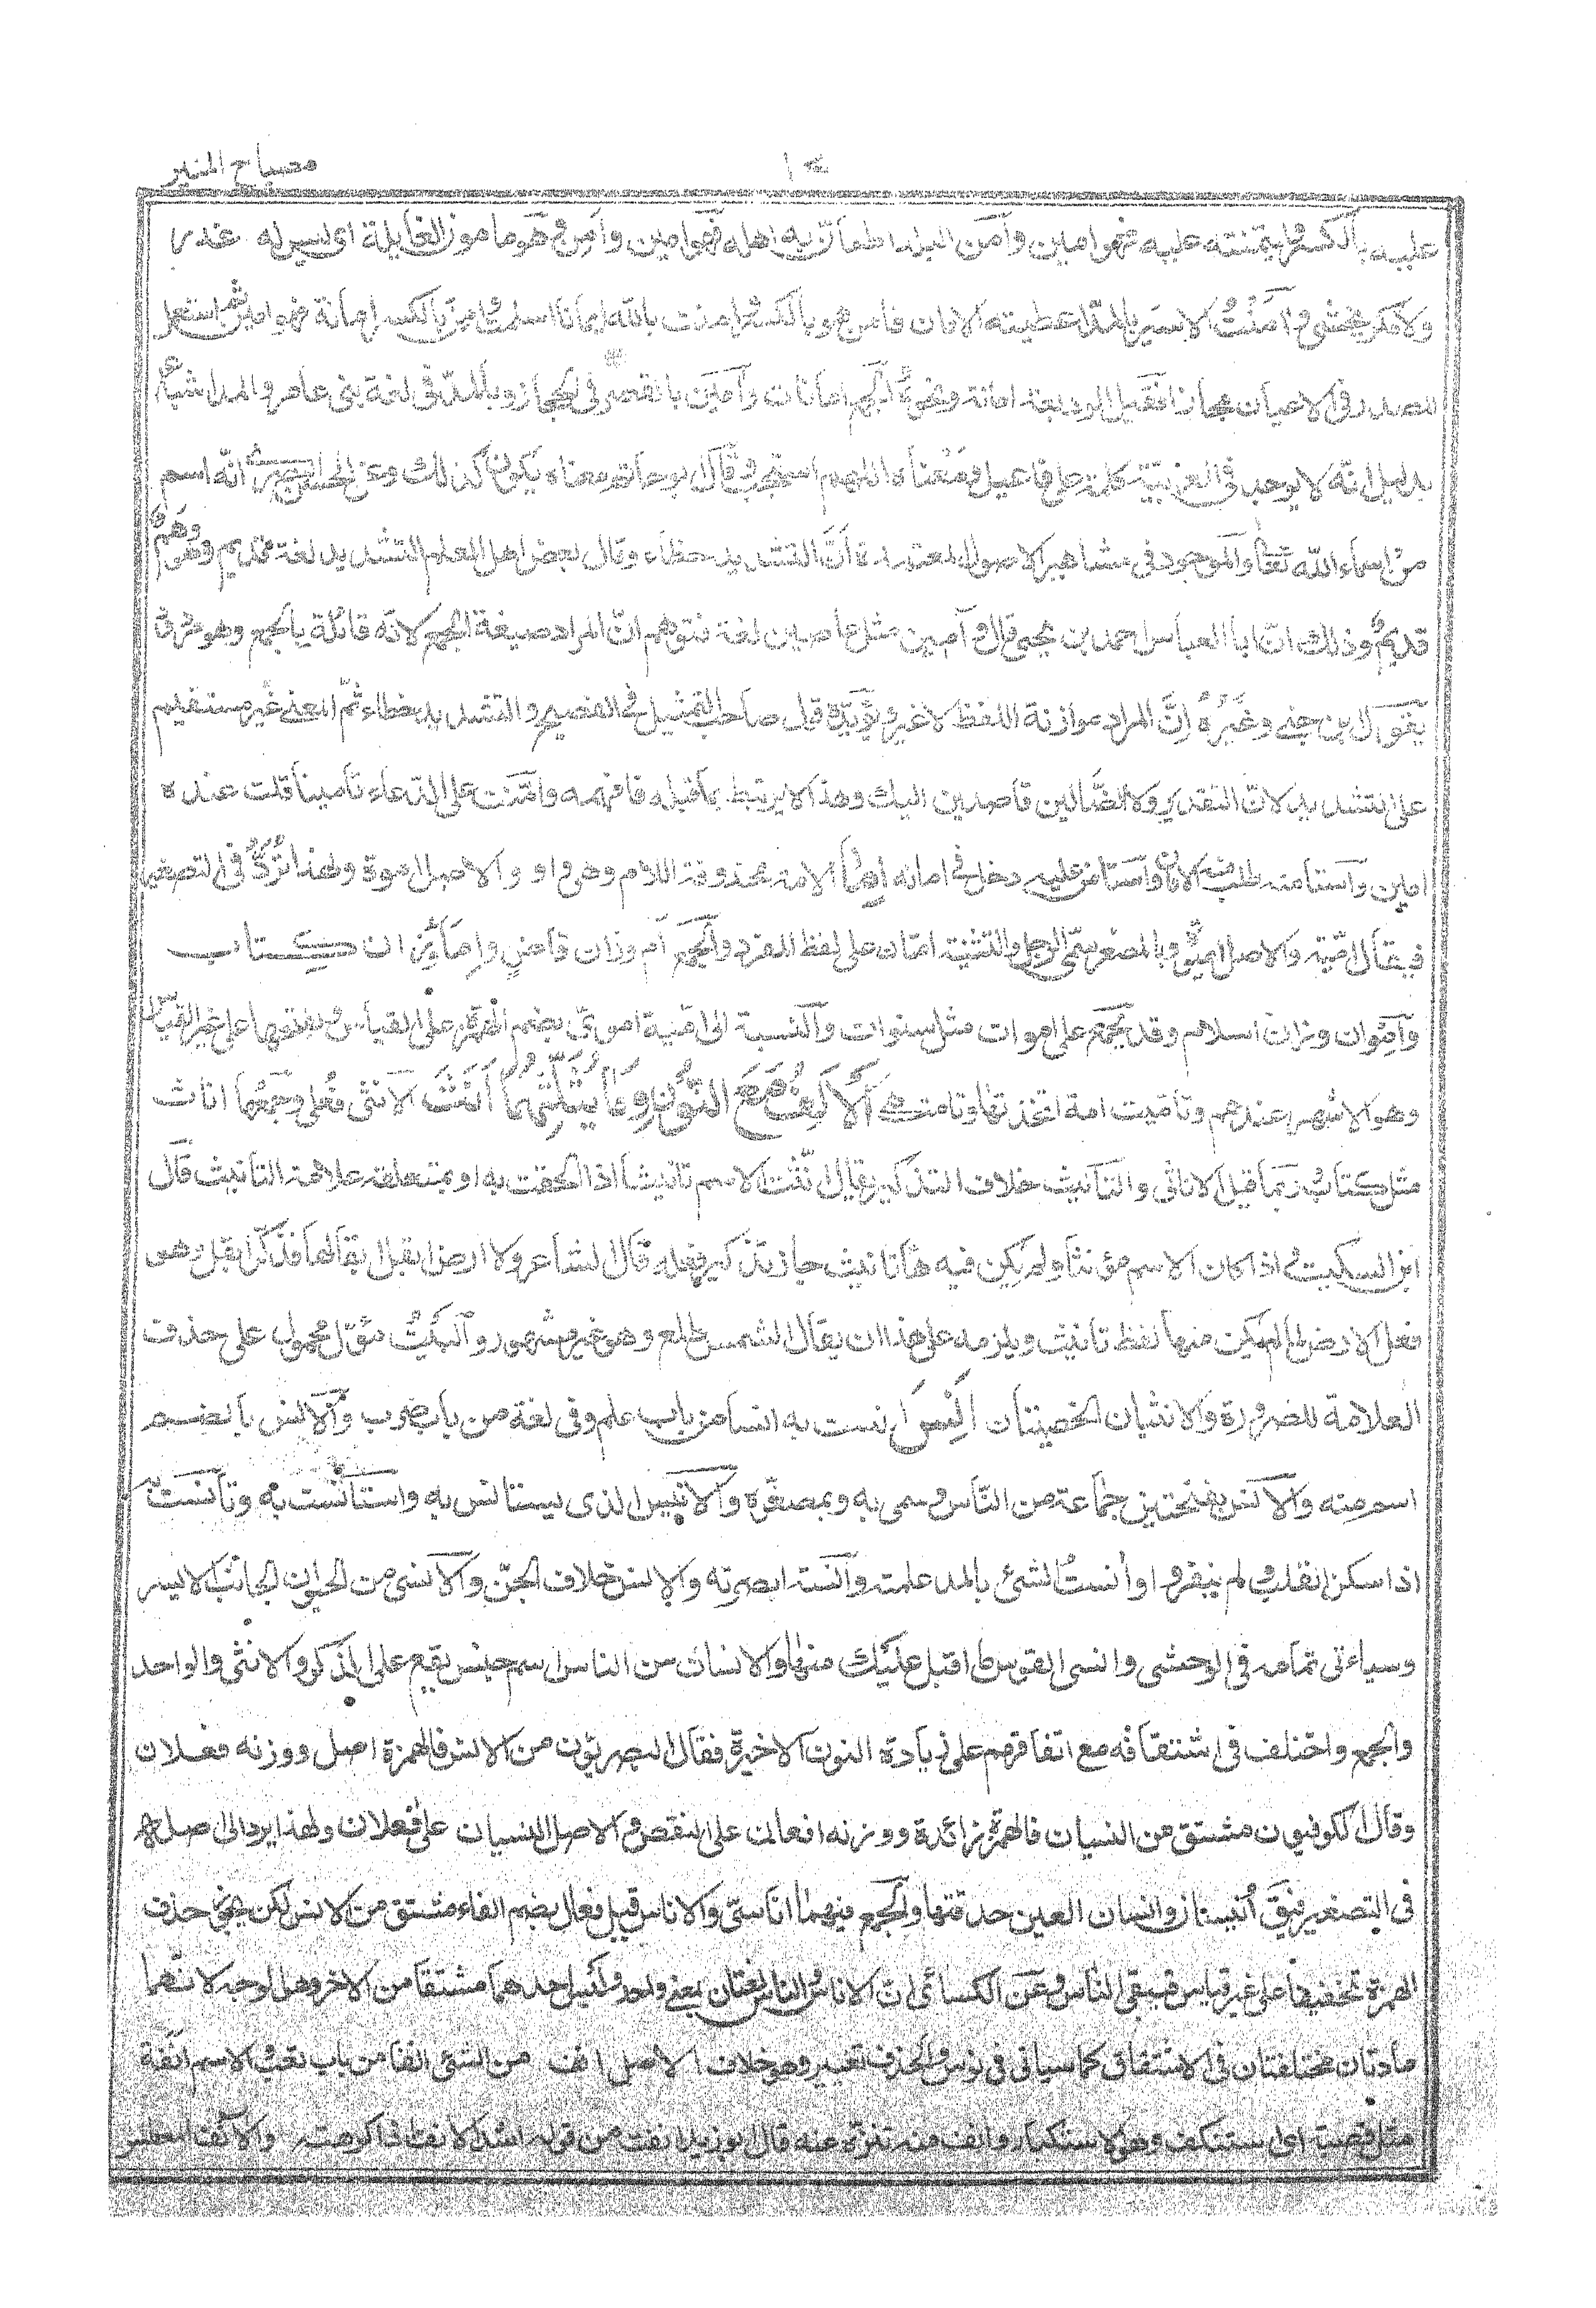 مصباح المنير
عليه بالكسر وائتمنته عليه فهو امين وأمن البلد اطمأن به اهله فهو امين وآمن وهو مامون الغايلة اى ليس له غدر
ولا مكر يخشى وآمنت الاسير بالمد اعطيته الامان فامن هو وبالكسر وامنت بالله ايمانا اسلمت وامن بالكسر امانة فهو امين ثم استعمل
المصدر فى الاعيان مجازا فقيل الوديعة امانة ونحوه والجمع امانات وآمين بالقصر فى الحجاز وبالمد فى لغة بنى عامر والمد اشباع
بدليل انه لا يوجد فى العربية كلمة على فاعيل ومعناه اللهم استجب وقال ابو حاتم معناه يكون كذلك وعن الحسن البصرى انه اسم
من اسماء الله تعا والموجود فى مشاهير الاصول المعتمدة أن التشديد خطاء وقال بعض اهل العلم التشديد لغة قديم وهو وهم
قديم وذلك ان ابا العباس احمد بن يحيى قال وآمين مثل عاصين لغة فتوهم ان المراد صيغة الجمع لانه قائلة بالجمع وهو مردود
بقول ابن جنى وغيره إن المراد موازنة اللفظ لا غير ويؤيده قول صاحب التمثيل فى الفصيح والتشديد خطاء ثم المعنى غير مستقيم
على التشديد لان التقدير ولا الضالين قاصدين اليك وهذا لا يرتبط بما قبله فافهمه وامنت على الدعاء تأمينا قلت عنده
امين واستأمنه طلب منه الامان واستأمن عليه دخل فى امانه الامة محذوفة اللام وهى واو والاصل اموة ولهذا تردّ فى التصغير
فيقال اميّة والاصل اميوة وبالمصغر سمى الرجل والتثنية امتان على لفظ المفرد والجمع آم وزان قاضٍ وإماء وزان كتاب
وإموان وزان اسلام وقد يجمع على اموات مثل سنوات والنسبة الى امية اموى بضم الهمزة على القياس وبفتحها على غير القياس
وهو الاشهر عندهم وتأميت امة اتخذتها وتامت هى الألف مع النون وما يثلثهما أنث الانثى فعلى وجمعها اناث
مثل كتاب وربما قيل الاناثى والتأنيث خلاف التذكير يقال انثت الاسم تانيثا اذا الحقت به او بمتعلقه علامة التأنيث قال
ابن السكيت واذا كان الاسم مؤنثا ولم يكن فيه هاء تانيث جاز تذكير فعله قال الشاعر ولا ارض ابقل ابقالها فذكر ابقل وهى
فعل الارض لما لم يكن منها لفظ تأنيث ويلزمه على هذا ان يقال الشمس طلع وهو غير مشهور والبيت مؤول محمول على حذف
العلامة للضرورة والانثيان الخصيتان أنس انست به انسا من باب علم وفى لغة من باب ضرب والانس بالضم
اسم منه والانس بفتحتين جماعة من الناس وسمى به وبمصغره والانيس الذى يستانس به واستأنست به وتأنست به
اذا سكن القلب ولم ينفر و أنست الشئ بالمد علمته وآنسته ابصرته والإنس خلاف الجن والانسى من الحيوان الجانب الايسر
وسياءتى تمامه فى الوحشى وانسى القوس ما اقبل عليك منها والانسان من الناس اسم جنس يقع على الذكر والانثى والواحد
والجمع واختلف فى اشتقاقه مع اتفاقهم على زيادة النون الاخيرة فقال البصريون من الانس فالهمزة اصل ووزنه فعلان
وقال الكوفيون مشتق من النسيان فالهمزة زائدة ووزنه افعان على النقص والاصل انسيان على افعلان ولهذا يرد الى اصله
فى التصغير فيق أنيسيان وانسان العين حدقتها والجمع فيهما اناسىّ والاناس قيل فعال بضم الفاء مشتق من الانس لكن يجوز حذف
الهمزة تخفيفا على غير قياس فيبقى الناس وعن الكسائى ان الاناس والناس لغتان بمعنى واحد وليس احدهما مشتقا من الاخر وهو الوجه لانهما
مادتان مختلفتان فى الاشتقاق كما سياتى فى نوس والحذف تغيير وهو خلاف الاصل انف من الشئ انفا من باب تعب والاسم انفة
مثل قصبة اى استنكف وهو الاستكبار وانف منه تنزه عنه قال ابو زيد انفت من قوله اشد الانف اذا كرهت والانف المعطس